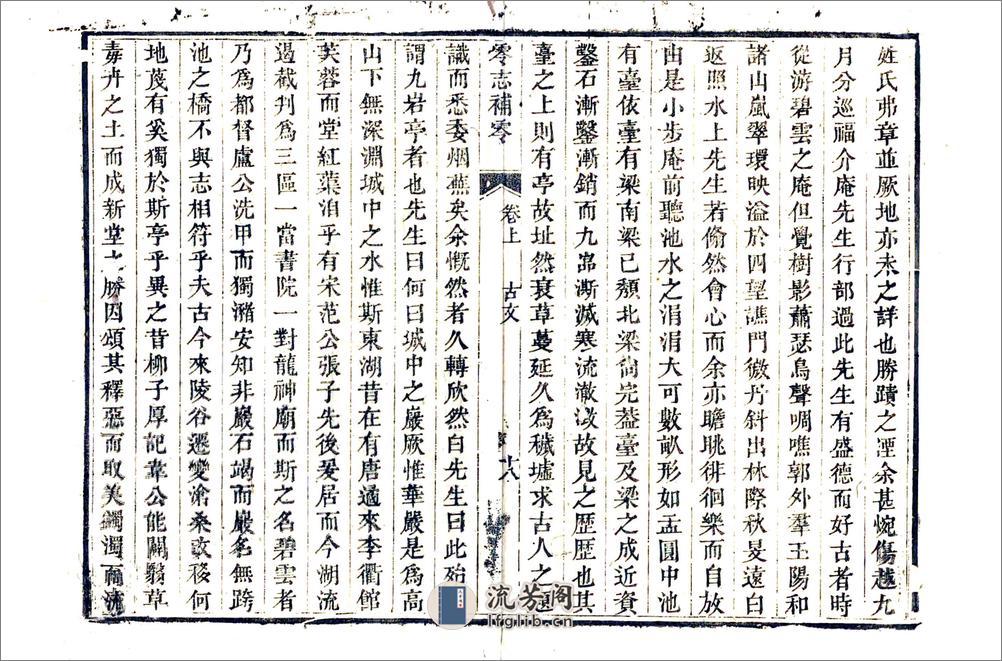 姓氏弗章並厥地亦未之詳也勝蹟之湮余甚惋傷越九
月分巡福介庵先生行部過此先生有盛德而好古者時
從游碧雲之庵但覺樹影蕭瑟鳥聲啁噍郭外羣玉陽和
諸山嵐翠環映溢於四望譙門微丹斜出林際秋旻遠白
返照水上先生若翛然會心而余亦瞻眺徘徊樂而自放
由是小步庵前聽池水之涓涓大可數畝形如盂圓中池
有臺依臺有梁南梁已頹北梁尚完葢臺及梁之成近資
鑿石漸鑿漸銷而九嵓漸滅寒流澈淢故見之歷歷也其
臺之上則有亭故址然衰草蔓延久為穢墟求古人之題
零志補零
卷上
古文
十八
識而悉委烟蕪矣余慨然者久轉欣然白先生曰此殆
謂九岩亭者也先生曰何曰城中之巖厥惟華嚴是為高
山下無深淵城中之水惟斯東湖昔在有唐適來李衢館
芙蓉而堂紅葉洎乎有宋范公張子先後爰居而今湖流
遏截判為三區一當書院一對龍神廟而斯之名碧雲者
乃為都督盧公洗甲而獨瀦安知非巖石竭而巖名無跨
池之橋不與志相符乎夫古今來陵谷遷變滄桑改移何
地蔑有奚獨於斯亭乎異之昔柳子厚記韋公能闢翳草
毒卉之土而成新堂之勝因頌其釋惡而取美蠲濁而流
流芳阁
lfglib.cn